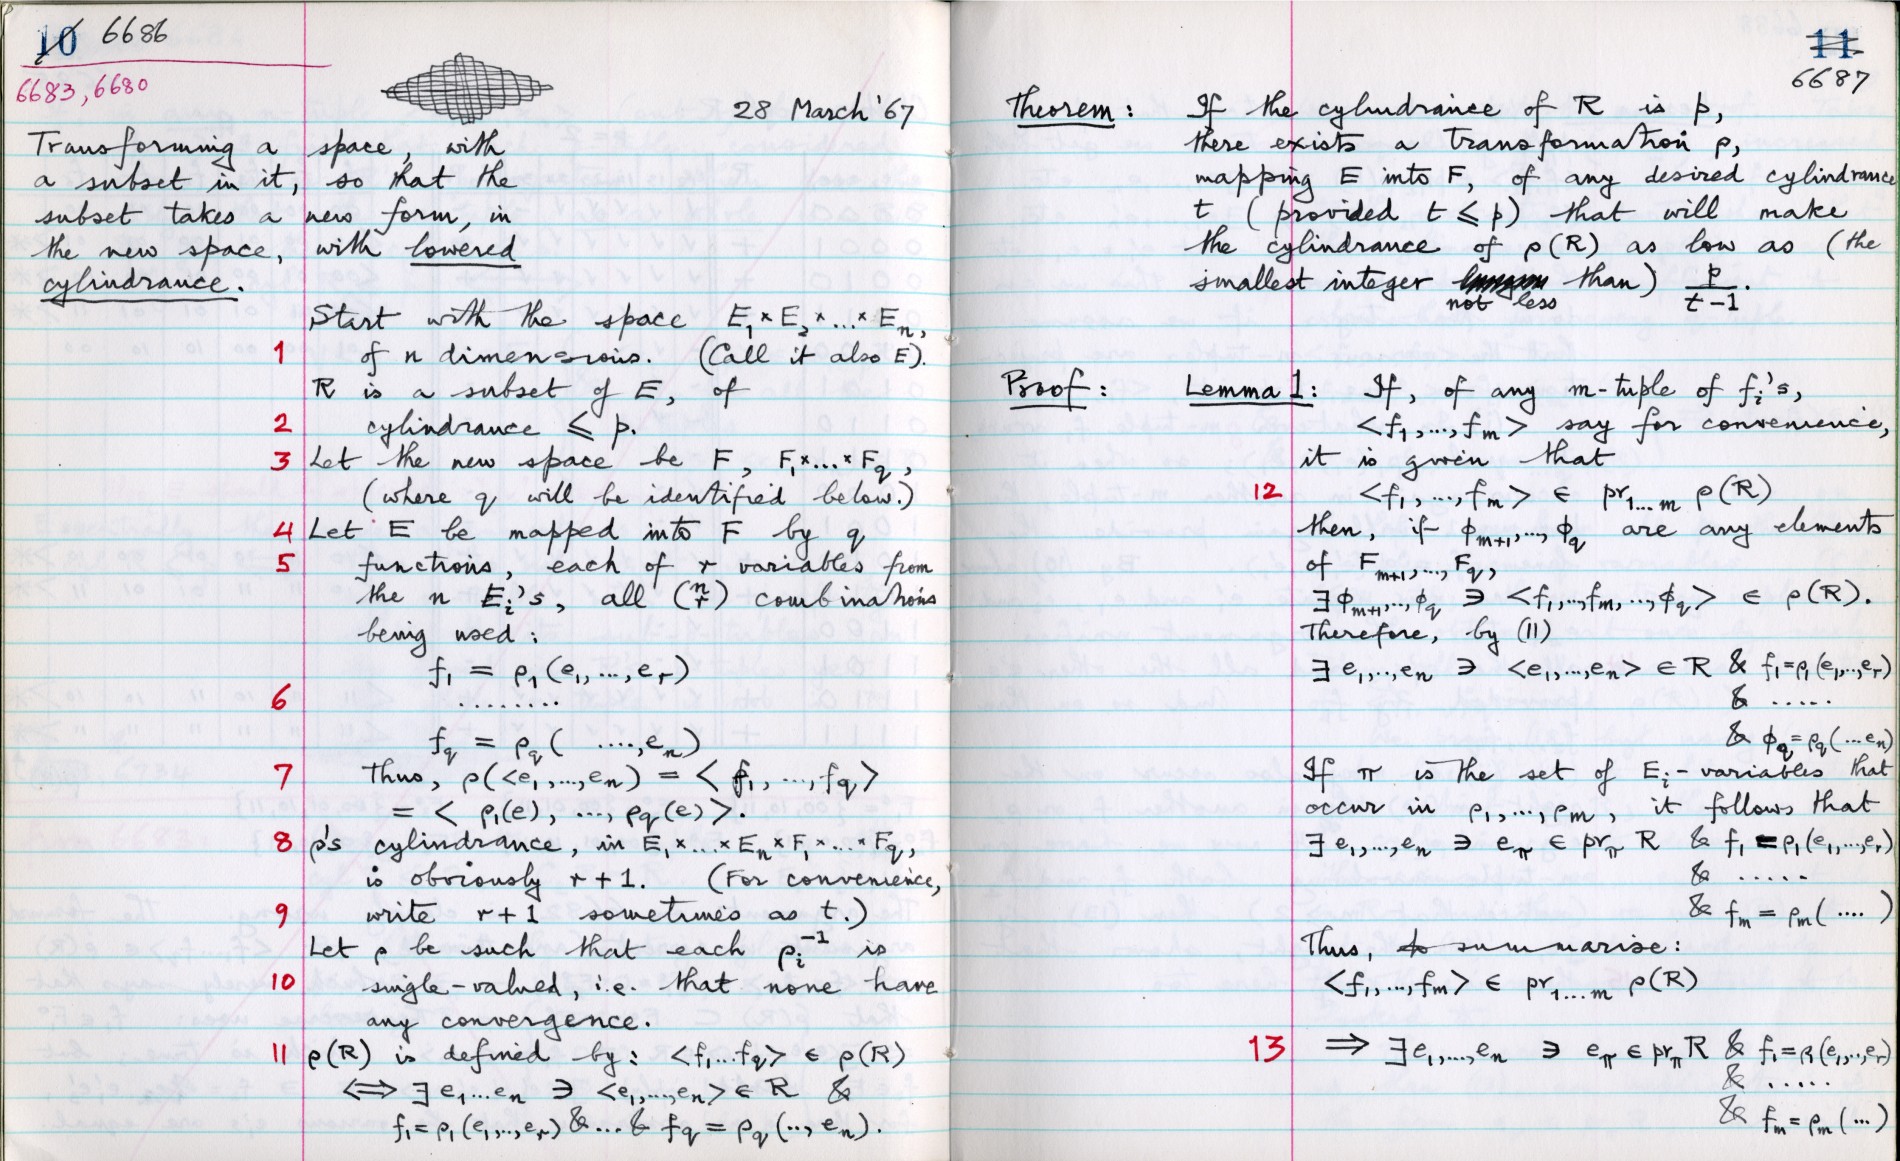 10 6686
6683, 6680
28 March '67
Transforming a space, with
a subset in it, so that the
subset takes a new form, in
the new space, with lowered
cylindrance.
Start with the space E₁×E₂×...×Eₙ,
1 of n dimensions. (Call it also E).
R is a subset of E, of
2 cylindrance ⩽ p.
3 Let the new space be F, F₁×...×F_q,
(where q will be identified below.)
4 Let E be mapped into F by q
5 functions, each of r variables from
the n Eᵢ's, all (n r) combinations
being used:
f₁ = ρ₁(e₁,...,eᵣ)
6 ........
f_q = ρ_q( ....,eₙ)
7 Thus, ρ(<e₁,...,eₙ) = <f₁, ...,f_q>
= < ρ₁(e), ..., ρ_q(e)>.
8 ρ's cylindrance, in E₁×...×Eₙ×F₁×...×F_q,
is obviously r+1. (For convenience,
9 write r+1 sometimes as t.)
Let ρ be such that each ρᵢ⁻¹ is
10 single-valued, i.e. that none have
any convergence.
11 ρ(R) is defined by: <f₁...f_q> ∈ ρ(R)
⟺ ∃ e₁...eₙ ∋ <e₁,...,eₙ> ∈ R &
f₁=ρ₁(e₁,..,eᵣ) &...& f_q = ρ_q(.., eₙ).
11
6687
Theorem: If the cylindrance of R is p,
there exists a transformation ρ,
mapping E into F, of any desired cylindrance
t (provided t ⩽ p) that will make
the cylindrance of ρ(R) as low as (the
smallest integer not less than) p/(t-1).
Proof: Lemma 1: If, of any m-tuple of fᵢ's,
<f₁,...,fₘ> say for convenience,
it is given that
12 <f₁,...,fₘ> ∈ pr₁...ₘ ρ(R)
then, if ϕₘ₊₁,...,ϕ_q are any elements
of Fₘ₊₁,...,F_q,
∃ϕₘ₊₁,..,ϕ_q ∋ <f₁,..,fₘ,...,ϕ_q> ∈ ρ(R).
Therefore, by (11)
∃ e₁,..,eₙ ∋ <e₁,...,eₙ> ∈ R & f₁=ρ₁(e₁,..,eᵣ)
& .....
& ϕ_q=ρ_q(...eₙ)
If π is the set of Eᵢ-variables that
occur in ρ₁,...,ρₘ, it follows that
∃ e₁,...,eₙ ∋ e_π ∈ pr_π R & f₁=ρ₁(e₁,...,eᵣ)
& .....
& fₘ = ρₘ(....)
Thus, to summarise:
<f₁,...,fₘ> ∈ pr₁...ₘ ρ(R)
13 ⟹ ∃e₁,...,eₙ ∋ e_π ∈ pr_π R & f₁=ρ₁(e₁,..,eᵣ)
& .....
& fₘ=ρₘ(...)